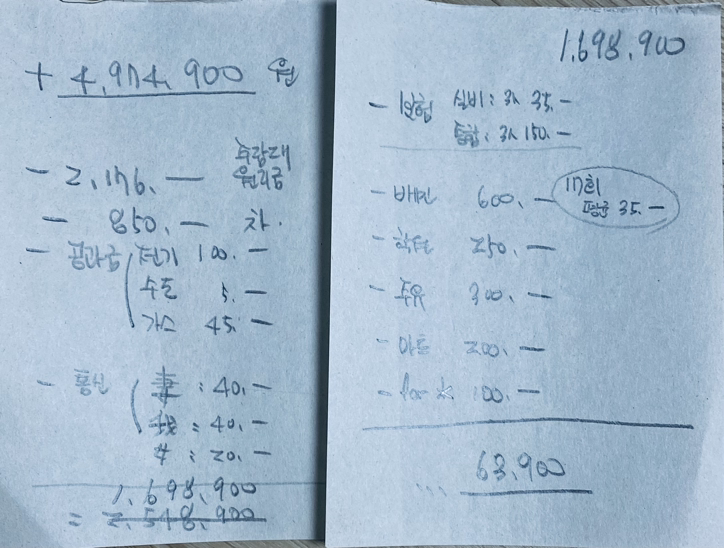 + 4,974,900 원
- 2,176.— 주담대 원리금
- 850.— 차.
- 공과금 전기 100.—
수도 5.—
가스 45.—
- 통신 妻 : 40.—
我 : 40.—
子 : 20.—
1,698,900
= 2,548,900
1,698,900
- 보험 실비: 3人 35.—
통합: 3人 150.—
- 배민 600.— 17회 평균 35.—
- 학원 250.—
- 주유 300.—
- 마트 200.—
- for 100.—
... 63,900